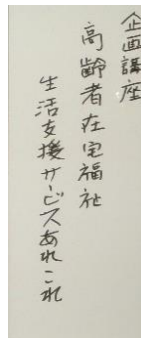 企画講座
高齢者在宅福祉
生活支援サービスあれこれ